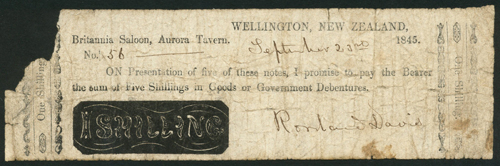 WELLINGTON, NEW ZEALAND,
Britannia Saloon, Aurora Tavern. September 23rd 1845.
No. 56
ON Presentation of five of these notes, I promise to pay the Bearer
the sum of Five Shillings in Goods or Government Debentures.
1 SHILLING
Rowland Davis
One Shilling